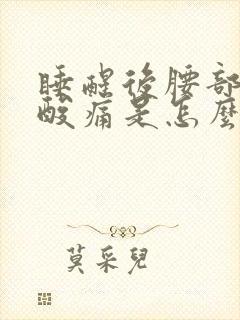 睡醒後腰部
酸痛是怎麼
莫采兒